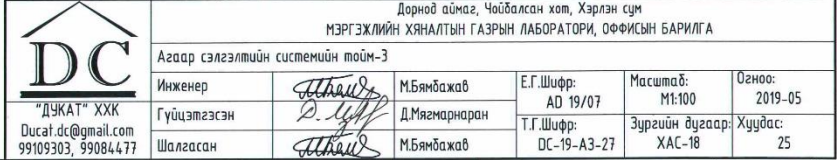 DC
"ДУКАТ" ХХК
Ducat.dc@gmail.com
99109303, 99084477
Дорнод аймаг, Чойбалсан хот, Хэрлэн сум
МЭРГЭЖЛИЙН ХЯНАЛТЫН ГАЗРЫН ЛАБОРАТОРИ, ОФФИСЫН БАРИЛГА
Агаар сэлгэлтийн системийн тойм-3
Инженер М.Бямбажав
Гүйцэтгэсэн Д.Мягмарнаран
Шалгасан М.Бямбажав
Е.Г.Шифр:
AD 19/07
Масштаб:
М1:100
Огноо:
2019-05
Т.Г.Шифр:
DC-19-A3-27
Зургийн дугаар:
ХАС-18
Хуудас:
25